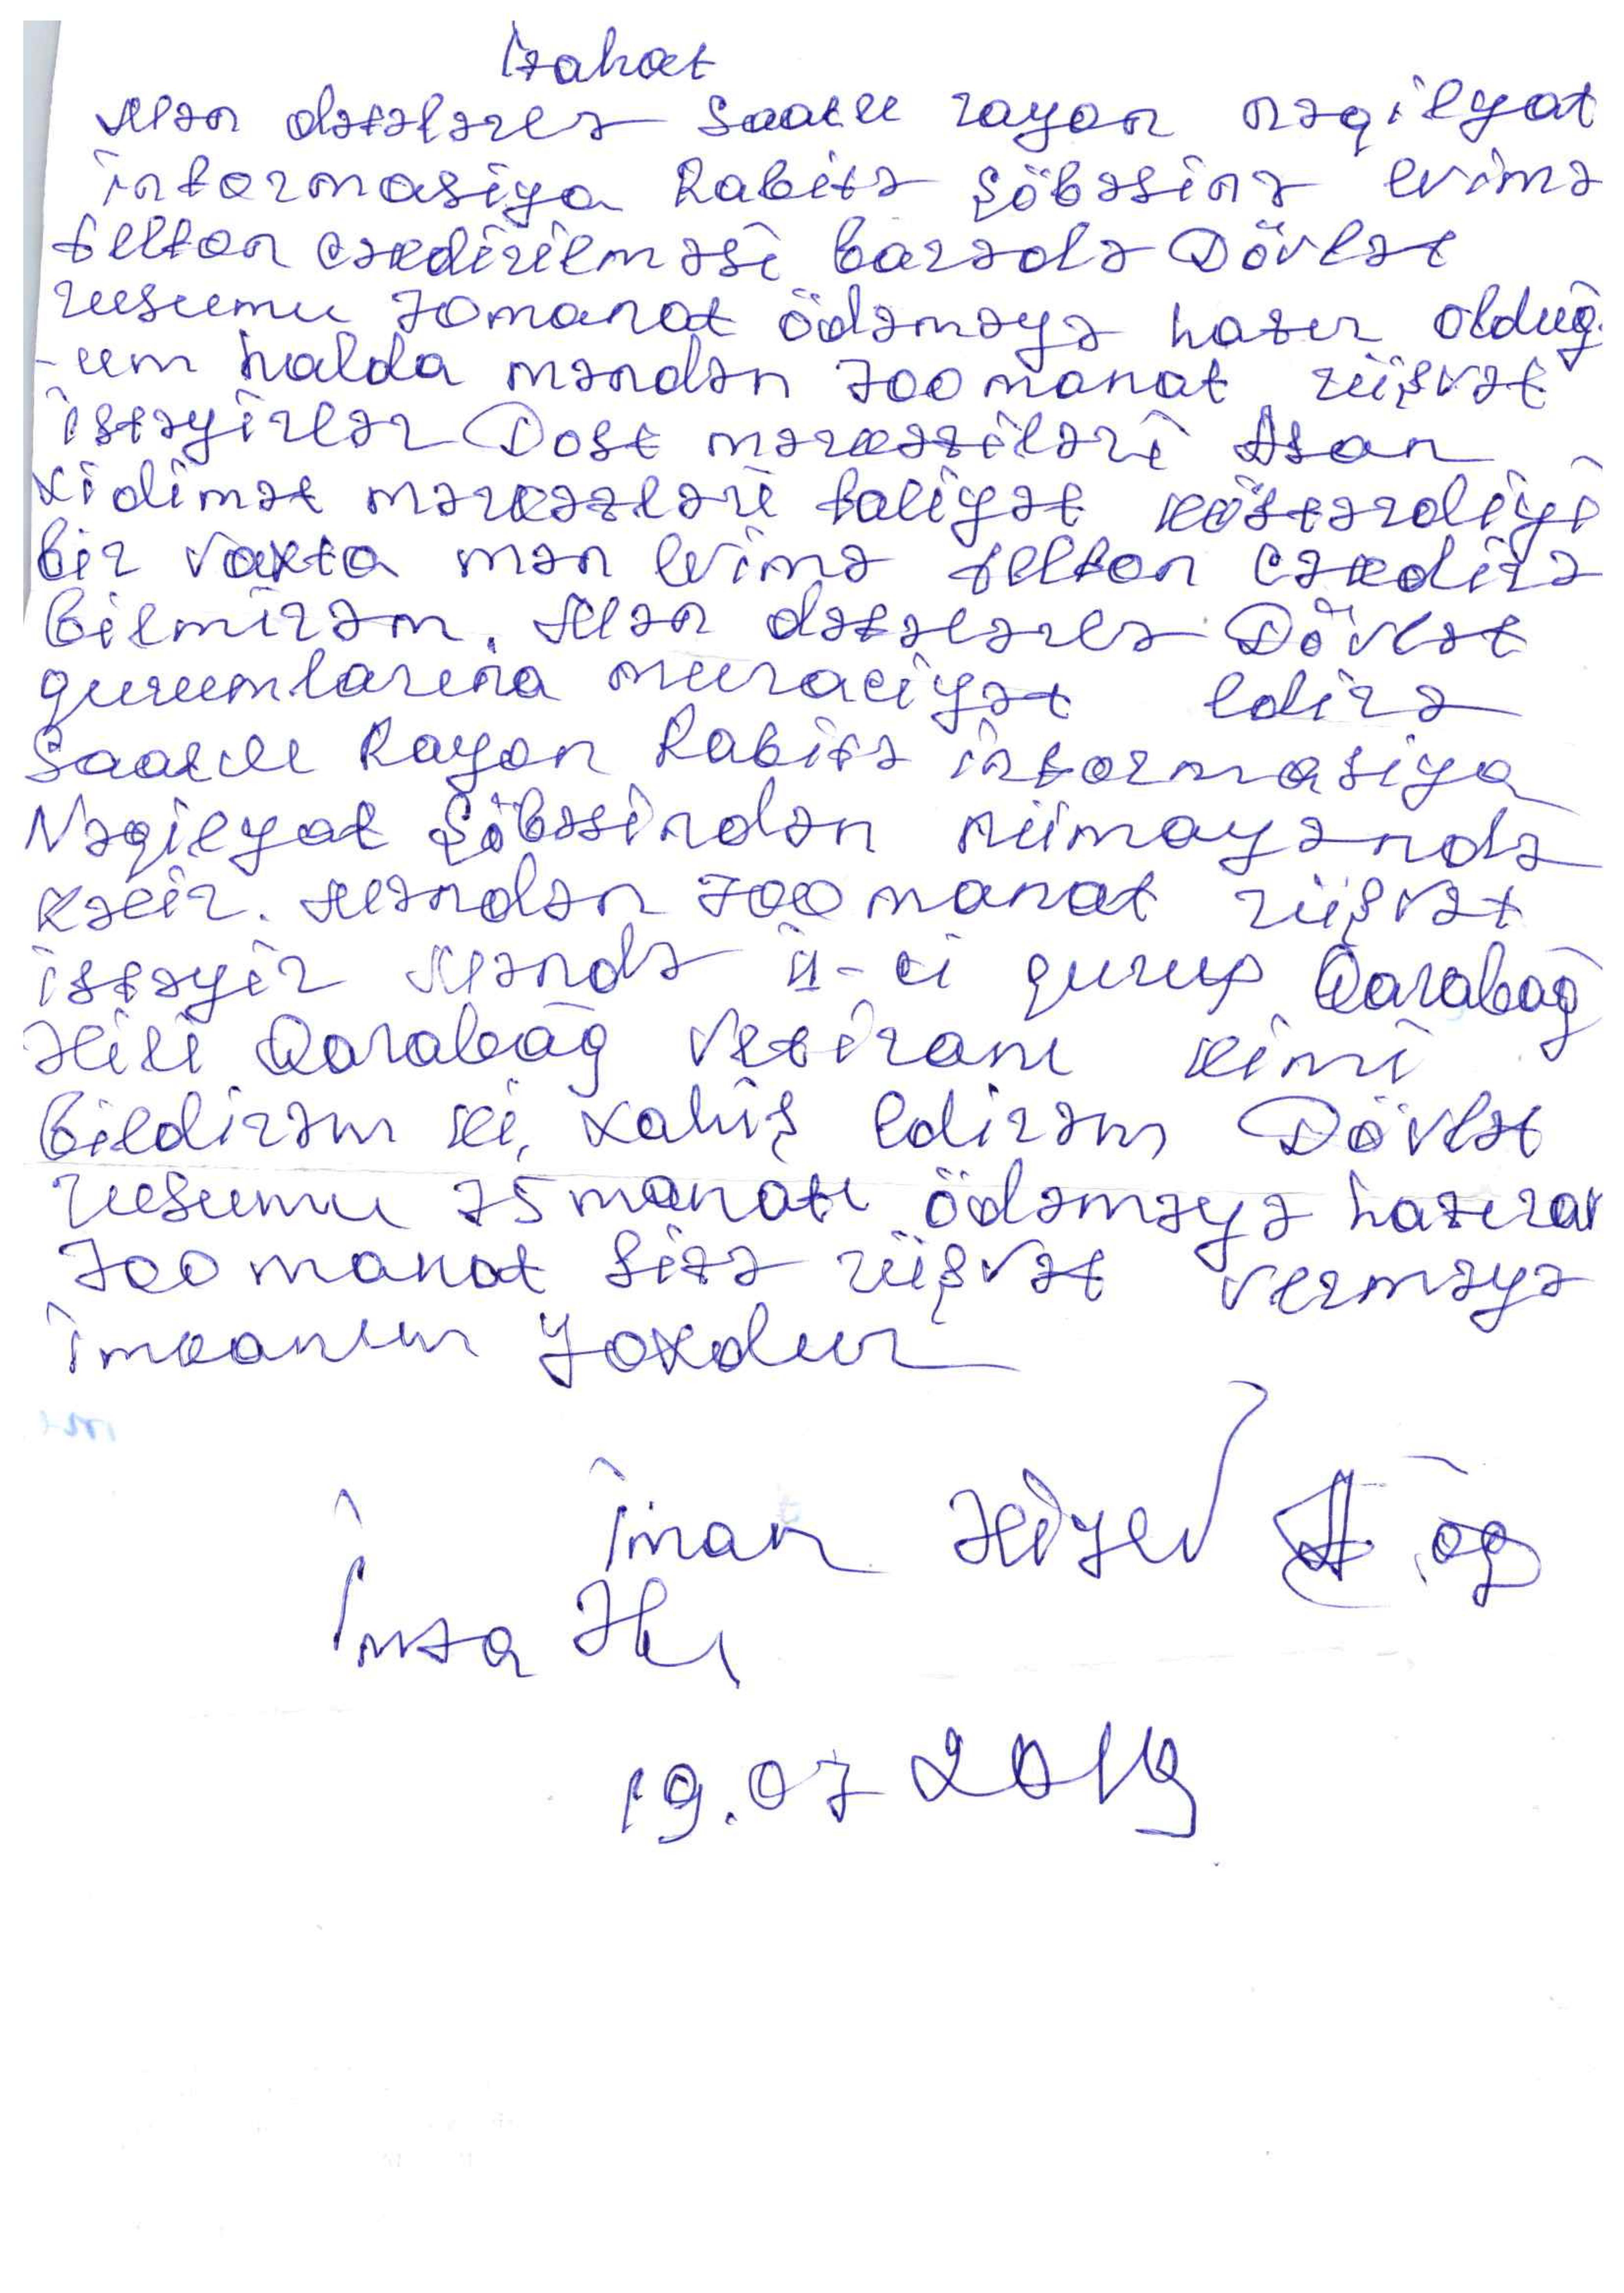 İzahat
Mən dəfələrlə Saatlı rayon nəqilyat
informasiya Rabitə şöbəsinə evimə
telfon cəkdirilməsi barədə Dövlət
rusumu 70 manat ödəməyə hazır olduğ
-um halda məndən 700 manat rüşvət
istəyirlər Dost mərkəziləri Asan
xidimət mərkəzləri faliyət köstərdiyi
bir vaxta mən evimə telfon cəkdirə
bilmirəm. Mən dəfələrlə Dövlət
qurumlarına muraciyət edirə
Saatlı Rayon Rabitə informasiya
Nəqilyat şöbəsindən nümayəndə
kəlir. Məndən 700 manat rüşvət
istəyir Məndə II-ci qurup Qarabağ
Əlili Qarabağ Vetiranı kimi
bildirəm ki, xahiş edirəm Dövlət
rusumu 75 manatı ödəməyə hazıram
700 manat sizə rüşvət verməyə
imkanım yoxdur
İman Əliyev A. og
İmza
19.07 2019